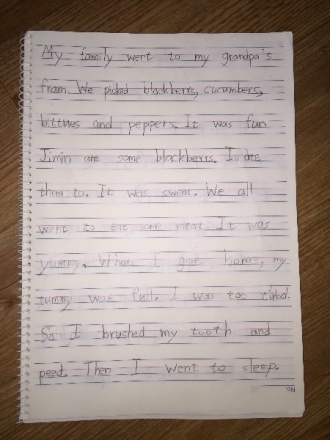 My family went to my grandpa's
fram. We picked blackberrs, cucumbers,
and peppers. It was fun
Jimin ate some blackberrs. I ate
them to. It was sweat. We all
went to eat some meat. It was
yummy. When I got home, my
tummy was full. I was too tired.
So I brushed my tooth and
peed. Then I went to sleep.